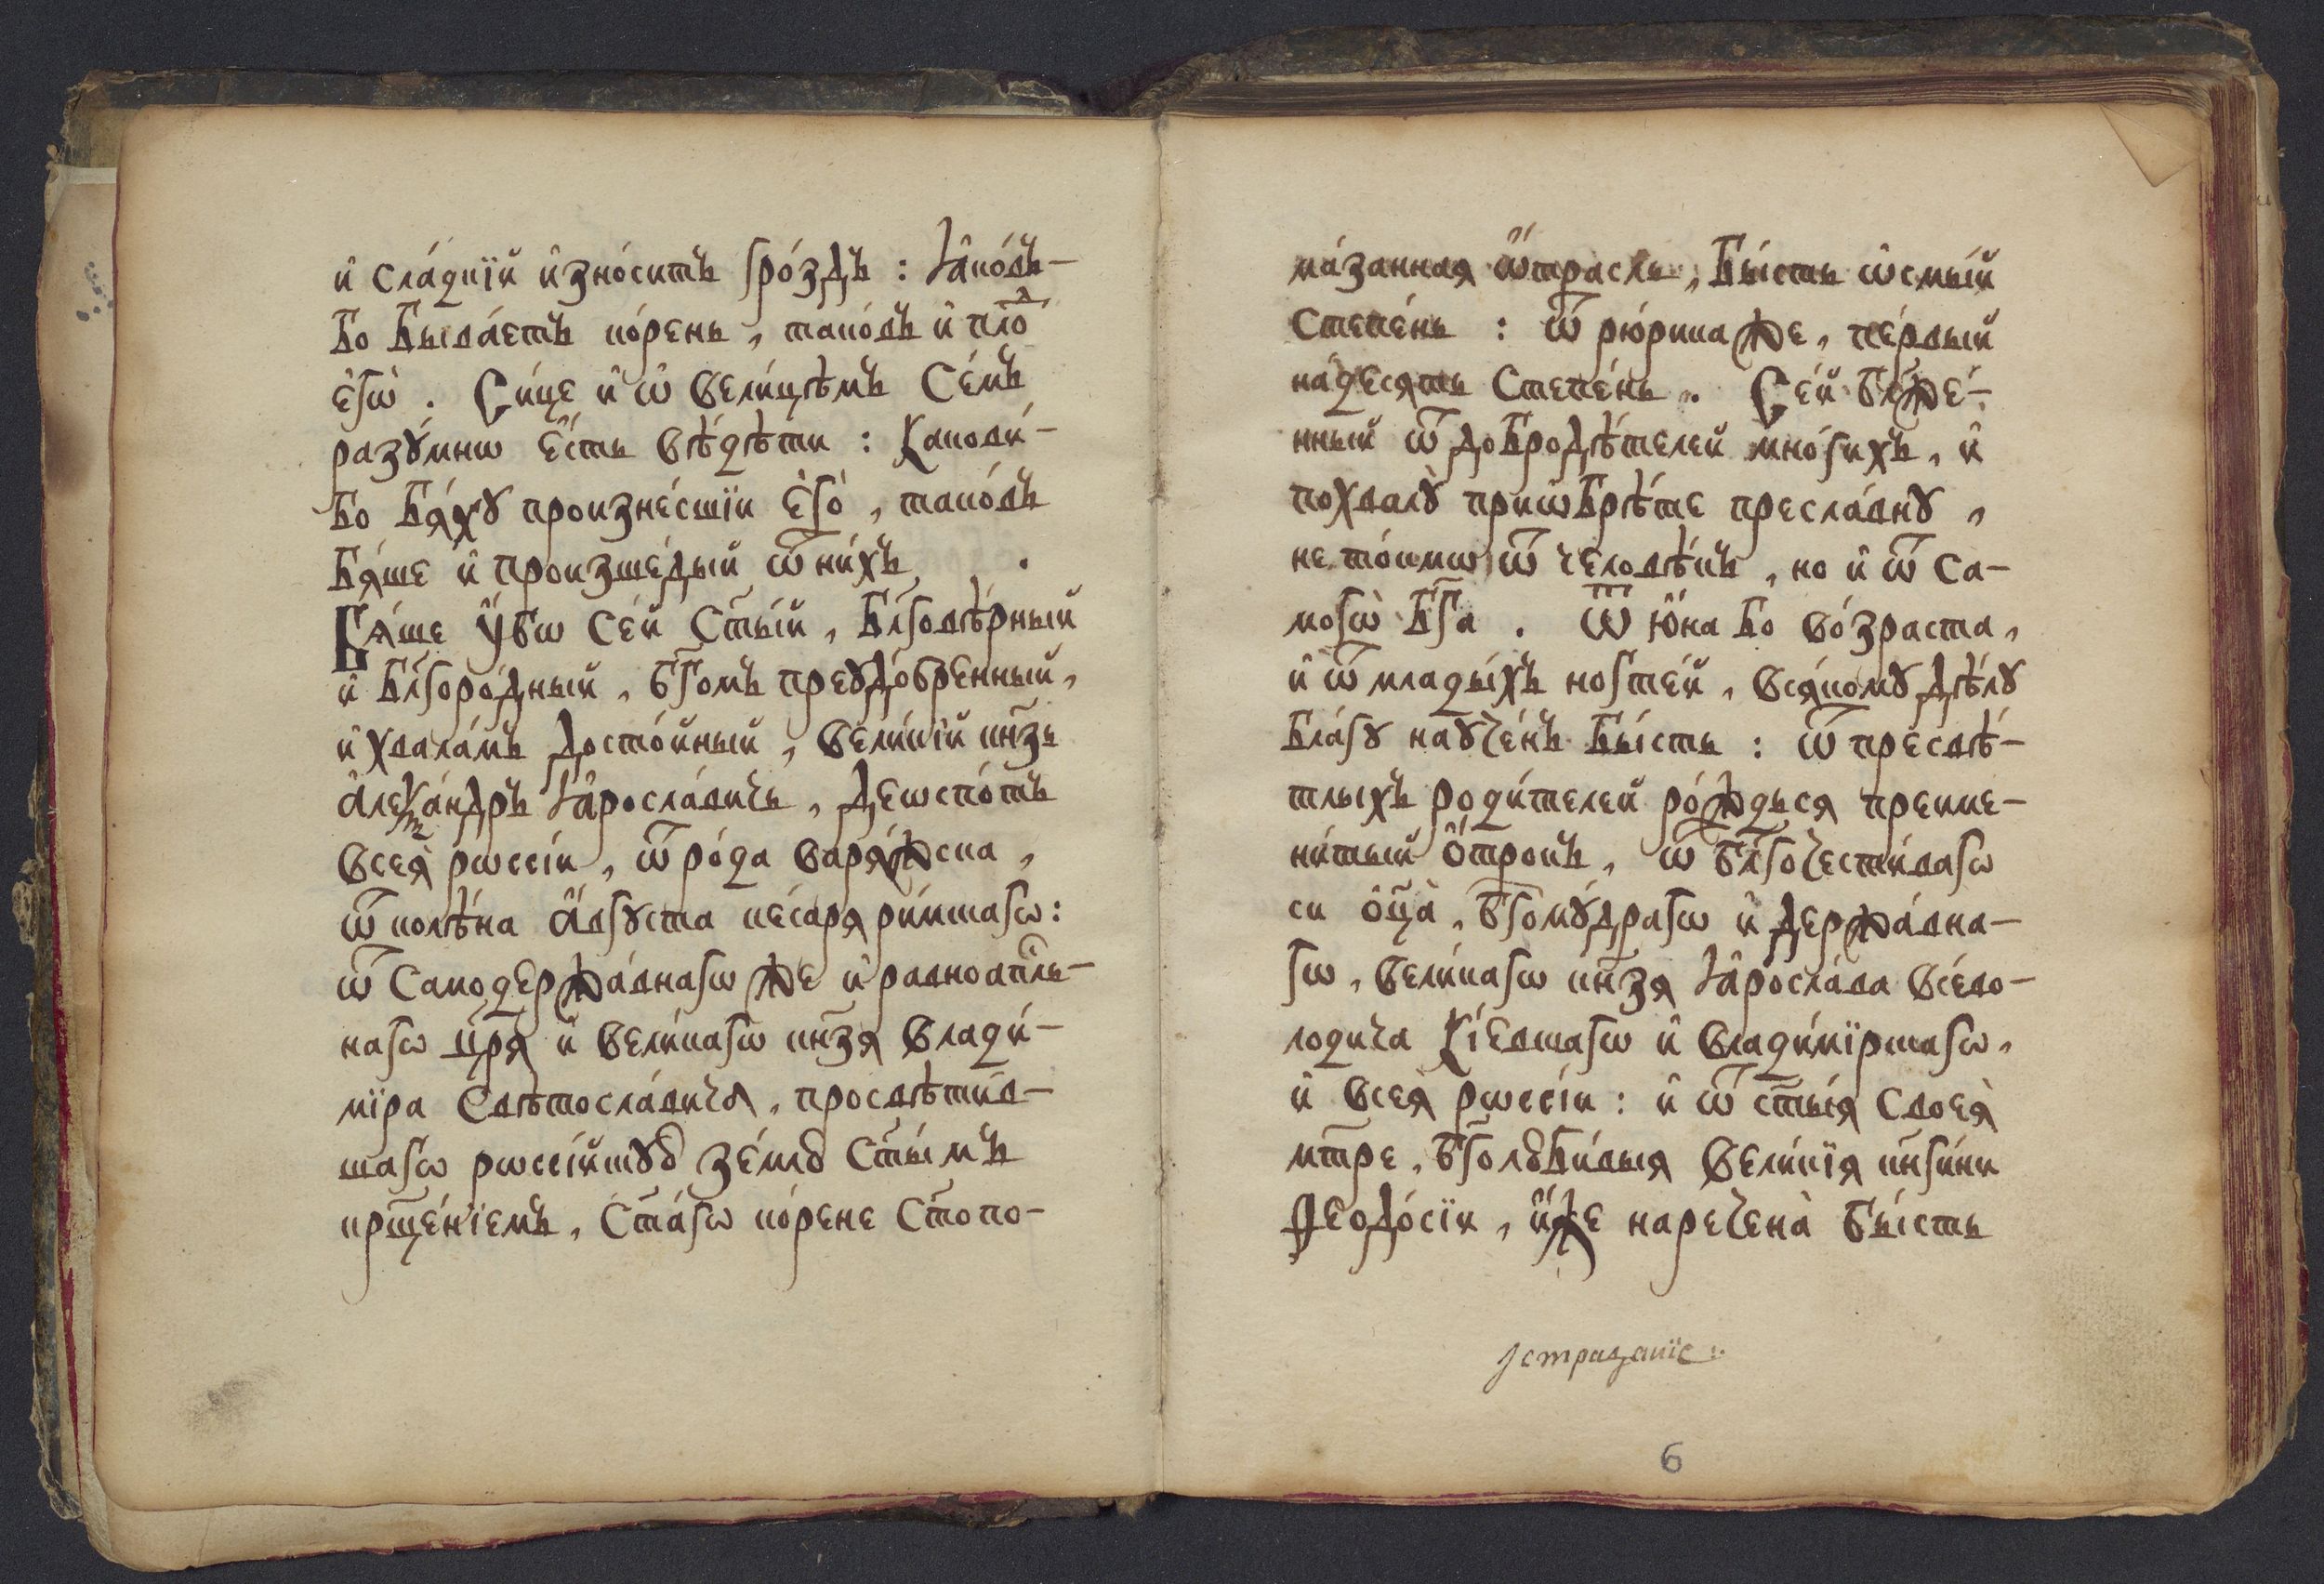 и҆ сла́дкїй и҆зно́ситъ гро́здъ : Ꙗ҆ко́въ-
бо быва́етъ ко́рень , тако́въ и҆ плоⷣ
є҆гѡ̀ . Си́це и҆ ѡ҆ вели́цѣмъ се́мъ
разꙋ́мнѡ є҆́сть вѣ́дѣти : Какови́-
бо бѧ́хꙋ произне́сшїи є҆го̀ , тако́въ
бѧ́ше и҆ произше́дый ѿ ни́хъ .
Бѧ́ше ᲂу҆́бѡ се́й ст҃ы́й , бл҃говѣ́рный
и҆ бл҃горо́дный , бг҃омъ преꙋдо́бренный ,
и҆ хвала́мъ досто́йный , вели́кїй кн҃зь
а҆леѯа́ндръ Ꙗ҆росла́вичь , деѡспо́тъ
всеѧ̀ рѡссі́и , ѿ ро́да варѧ́жска ,
ѿ колѣ́на а҆́ѵгꙋста ке́сарѧ ри́мскагѡ :
ѿ самодержа́внагѡ же и҆ равноапⷭ҇ль-
нагѡ цр҃ѧ̀ и҆ вели́кагѡ кн҃зѧ влади́-
мїра свѣтосла́вича , просвѣти́в-
шагѡ рѡссі́йскꙋю зе́млю ст҃ы́мъ
крщ҃е́нїемъ , ст҃а́гѡ ко́рене ст҃опо-
ма́занная ѡ҆́трасль , бы́сть ѻ҆смы́й
степе́нь : ѿ рю́рика же , пе́рвый
на́десѧть степе́нь . Се́й бл҃же́-
нный ѿ добродѣ́телей мно́гихъ , и҆
похвалꙋ̀ приѡбрѣ́те пресла́внꙋ ,
не то́кмѡ ѿ человѣ́къ , но и҆ ѿ са-
могѡ̀ бг҃а . Ѿ ю҆́на бо во́зраста ,
и҆ ѿ млады́хъ ногте́й , всѧ́комꙋ дѣ́лꙋ
бла́гꙋ наꙋче́нъ бы́сть : ѿ пресвѣ́-
тлыхъ роди́телей ро́ждьсѧ преиме-
ни́тый ѻ҆́трокъ , ѿ бл҃гочести́вагѡ
си ѻ҆ц҃а̀ , бг҃омꙋ́драгѡ и҆ держа́вна-
гѡ , вели́кагѡ кн҃зѧ Ꙗ҆росла́ва все́во-
лодича кі́евскагѡ и҆ влади́мїрскагѡ ,
и҆ всеѧ̀ рѡссі́и : и҆ ѿ ст҃ы́ѧ своеѧ̀
мт҃ре , бг҃олюби́выѧ вели́кїѧ кн҃ги́ни
Ѳеодо́сїи , ꙗ҆́же нарече́на бы́сть
6